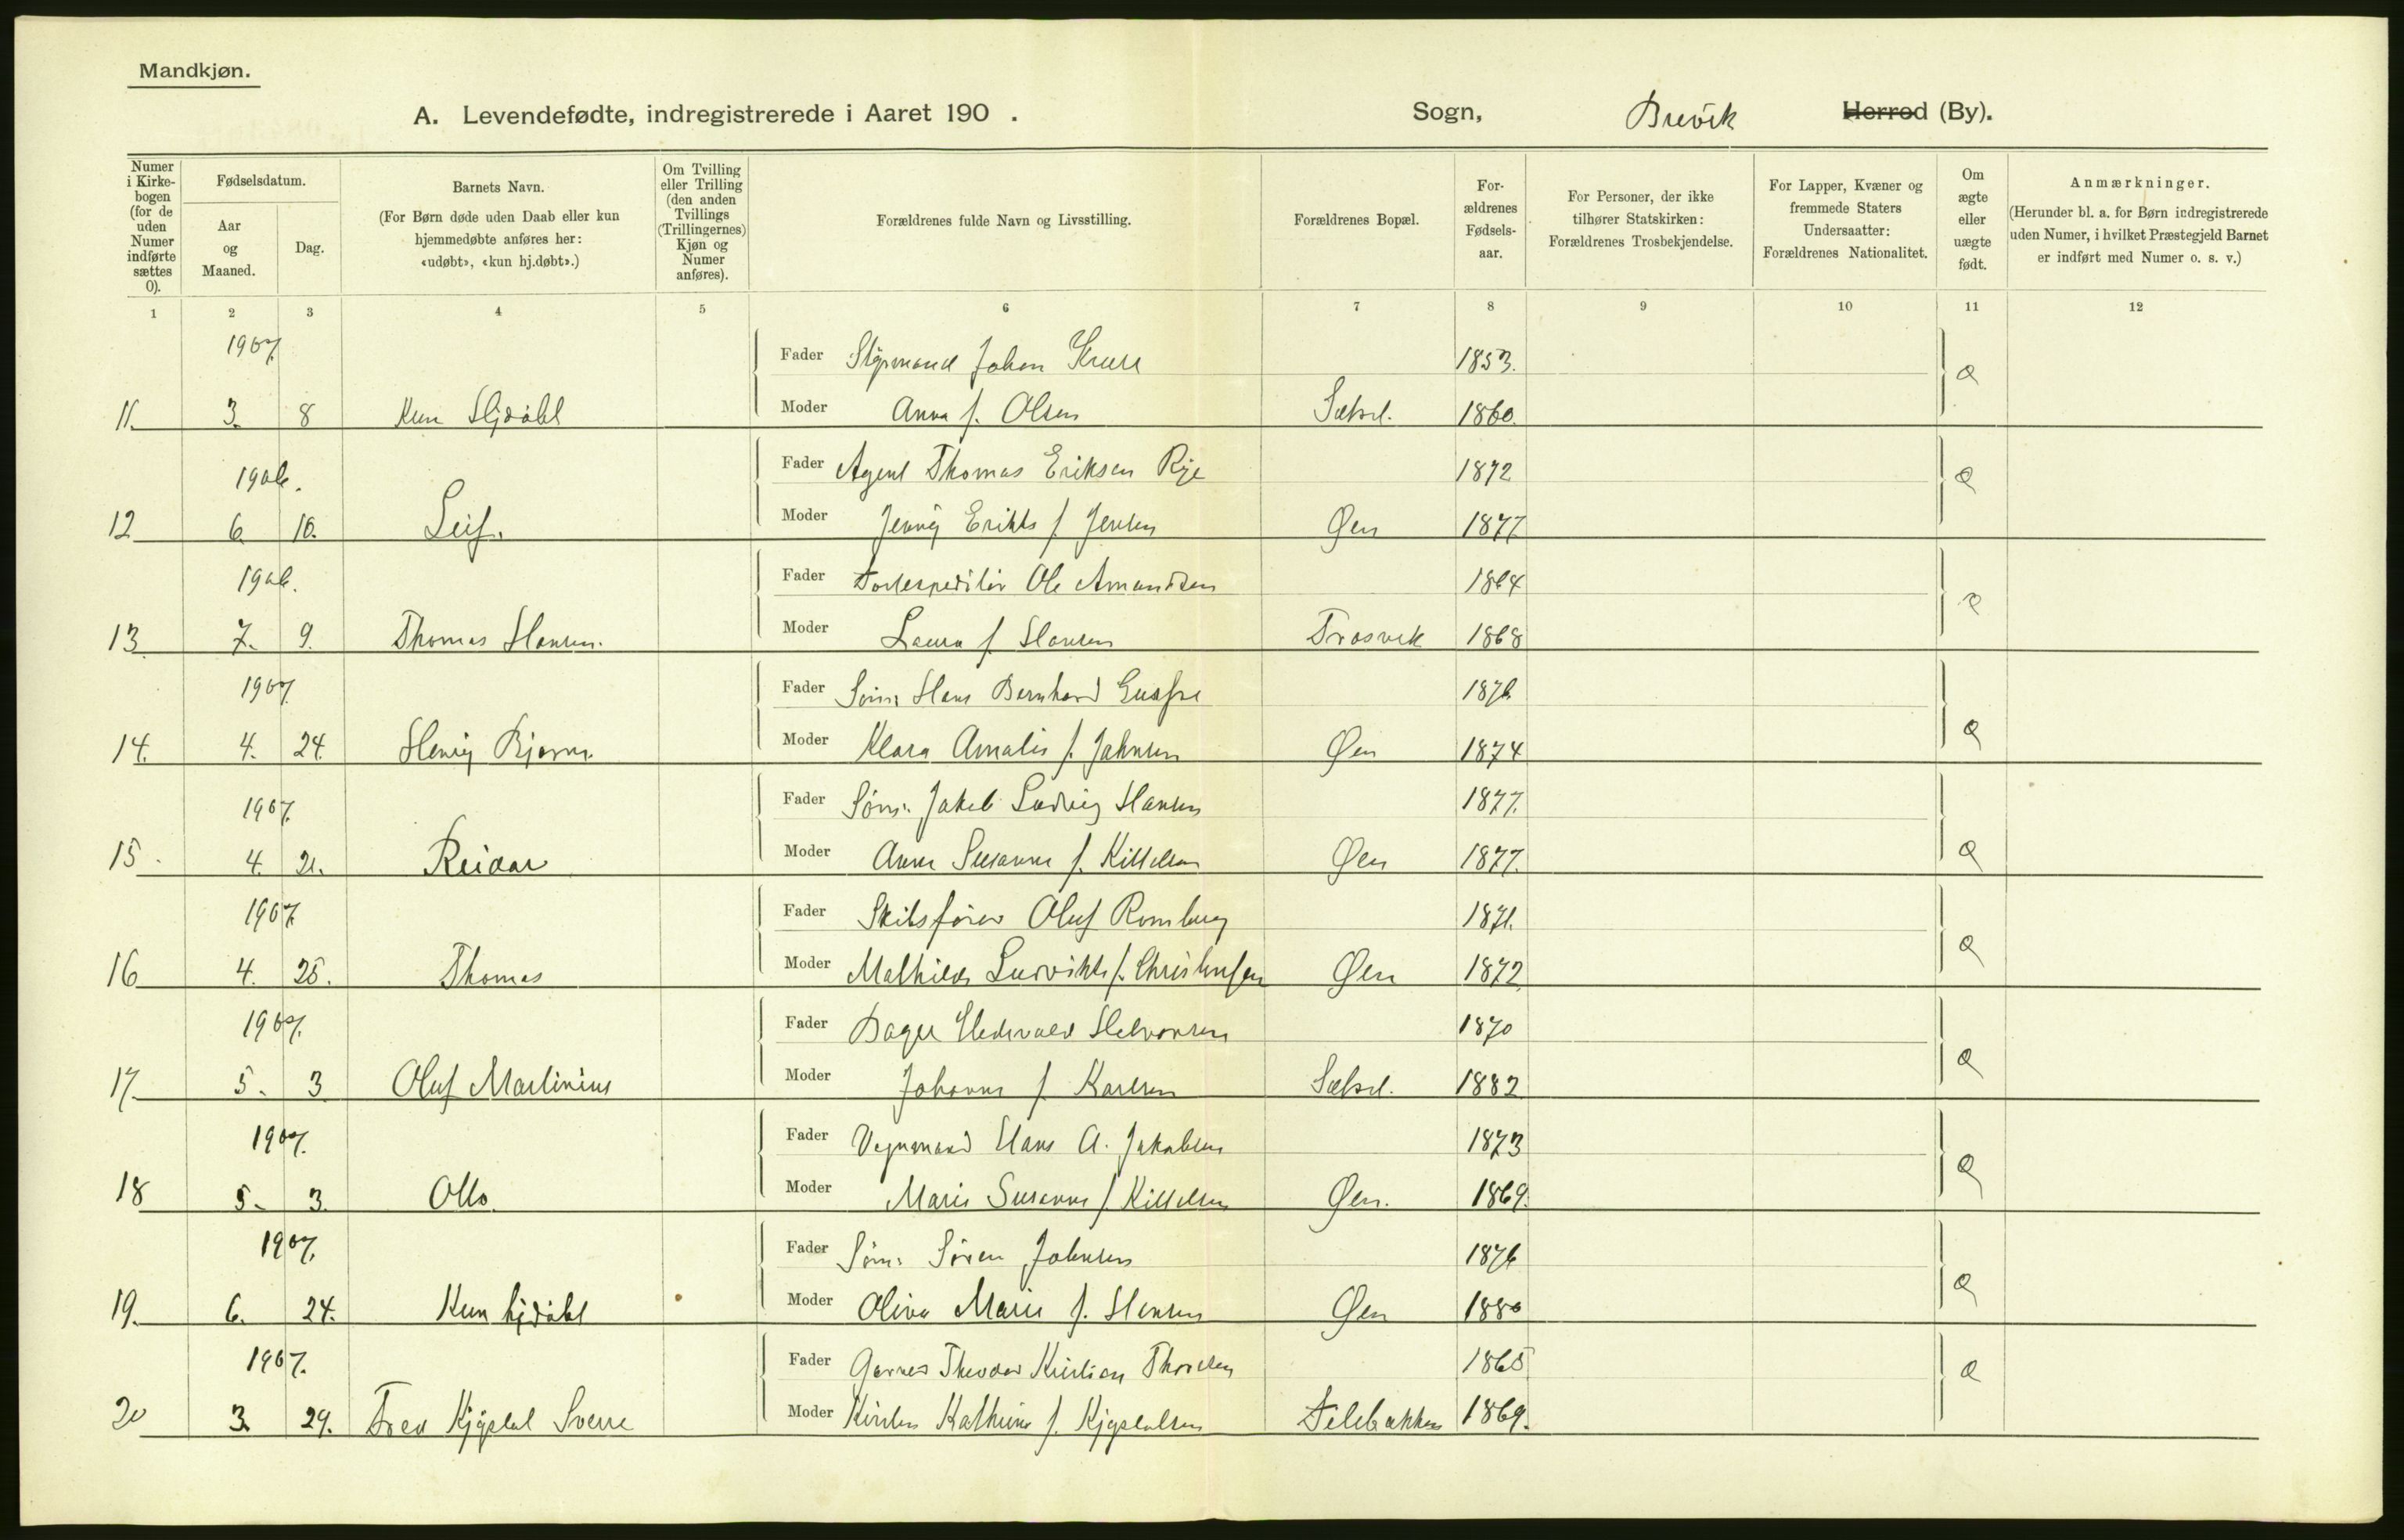 Mandkjøn.
A. Levendefødte, indregistrerede i Aaret 190 . Sogn, Brevik Herred (By).
Numer i Kirkebogen (for de uden Numer indførte sættes 0).
Fødselsdatum.
Aar og Maaned.
Dag.
Barnets Navn.
(For Børn døde uden Daab eller kun hjemmedøbte anføres her: «udøbt», «kun hj.døbt».)
Om Tvilling eller Trilling (den anden Tvillings (Trillingernes) Kjøn og Numer anføres).
Forældrenes fulde Navn og Livsstilling.
Forældrenes Bopæl.
Forældrenes Fødselsaar.
For Personer, der ikke tilhører Statskirken: Forældrenes Trosbekjendelse.
For Lapper, Kvæner og fremmede Staters Undersaatter: Forældrenes Nationalitet.
Om ægte eller uægte født.
Anmærkninger.
(Herunder bl. a. for Børn indregistrerede uden Numer, i hvilket Præstegjeld Barnet er indført med Numer o. s. v.)
1 2 3 4 5 6 7 8 9 10 11 12
1907 Fader Johan 1853.
11. 3. 8 Kun Hjdøbt Moder Anna f. Olsen 1860.
1906. Fader Agent Thomas Eriksen Rye 1872
12 6 10. Leif. Moder Jenny f. Jensen Øen 1877
1906. Fader Ole Amundsen 1864
13 7. 9. Thomas Hansen. Moder Laura f Hansen Trosvik 1868
1907. Fader Søm: Hans Bernhard 1876
14. 4. 24. Henry Bjarne. Moder Klara Amalie f. Johnsen Øen 1874
1907. Fader Søm: Jakob Ludvig Hansen 1877.
15. 4. 21. Reidar Moder Anne Susanne f. Kittelsen Øen 1877.
1907. Fader Skibsfører Oluf Romberg 1871.
16 4. 25. Thomas Moder Mathilde f. Christensen Øen 1872
1907. Fader Bager Halvorsen 1870
17. 5. 3 Oluf Martinius Moder Johanne f. Karlsen 1882
1907. Fader Hans A. Jakobsen 1873
18 5. 3. Otto. Moder Marie Susanne f. Kittelsen Øen. 1869.
1907. Fader Søm: Søren Johnsen 1876
19. 6. 24. Kun hjdøbt Moder Oliva Marie f. Hansen Øen 1880
1907. Fader Garver Theodor Kristian Thorsen 1865
20 3. 29. Fred Sverre Moder Kirsten Kathrine f. 1869.